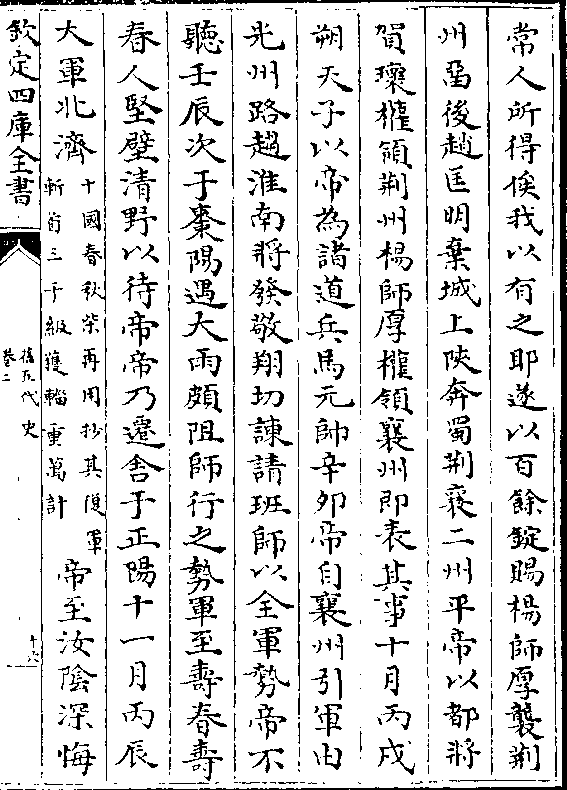 常人所得俟我以有之耶遂以百餘錠賜楊師厚襲荆
州畱後趙匡明棄城上陝奔蜀荆襄二州平帝以都將
賀瓌權領荆州楊師厚權領襄州即表其事十月丙戌
朔天子以帝為諸道兵馬元帥辛卯帝自襄州引軍由
光州路趨淮南將發敬翔切諫請班師以全軍勢帝不
聽壬辰次于棗陽遇大雨頗阻師行之勢軍至壽春壽
春人堅壁清野以待帝帝乃還舍于正陽十一月丙辰
大軍北濟十國春秋柴再用抄其後軍
斬首三千級獲輜重萬計
帝至汝陰深悔
欽定四庫全書
舊五代史
卷二
十六